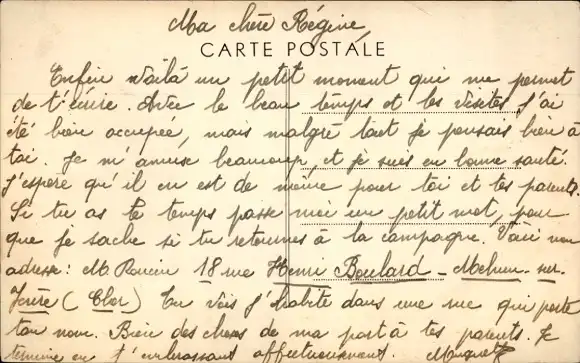 Ma chère Régine,
CARTE POSTALE
Enfin voilà un petit moment qui me permet
de t'écrire. Avec le beau temps et les visites j'ai
été bien occupée, mais malgré tout je pensais bien à
toi. Je m'amuse beaucoup, et je suis en bonne santé.
J'espère qu'il en est de même pour toi et tes parents.
Si tu as le temps passe moi un petit mot, pour
que je sache si tu retournes à la campagne. Voici mon
adresse : M. 18 rue Henri Boulard - Mehun - sur -
Yèvre (Cher) Tu vois j'habite dans une rue qui porte
ton nom. Bien des choses de ma part à tes parents. Je
termine en t'embrassant affectueusement